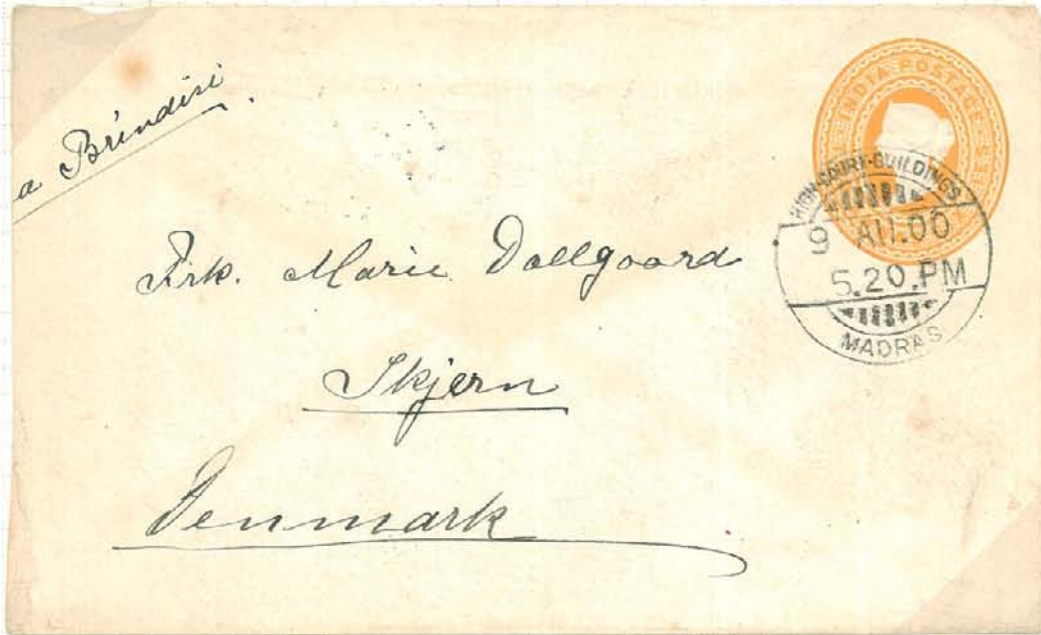 a Brindisi
INDIA POSTAGE
HIGH-COURT-BUILDINGS
9 AU.00
5.20.PM
MADRAS
Frk. Marie Dollgaard
Skjern
Denmark